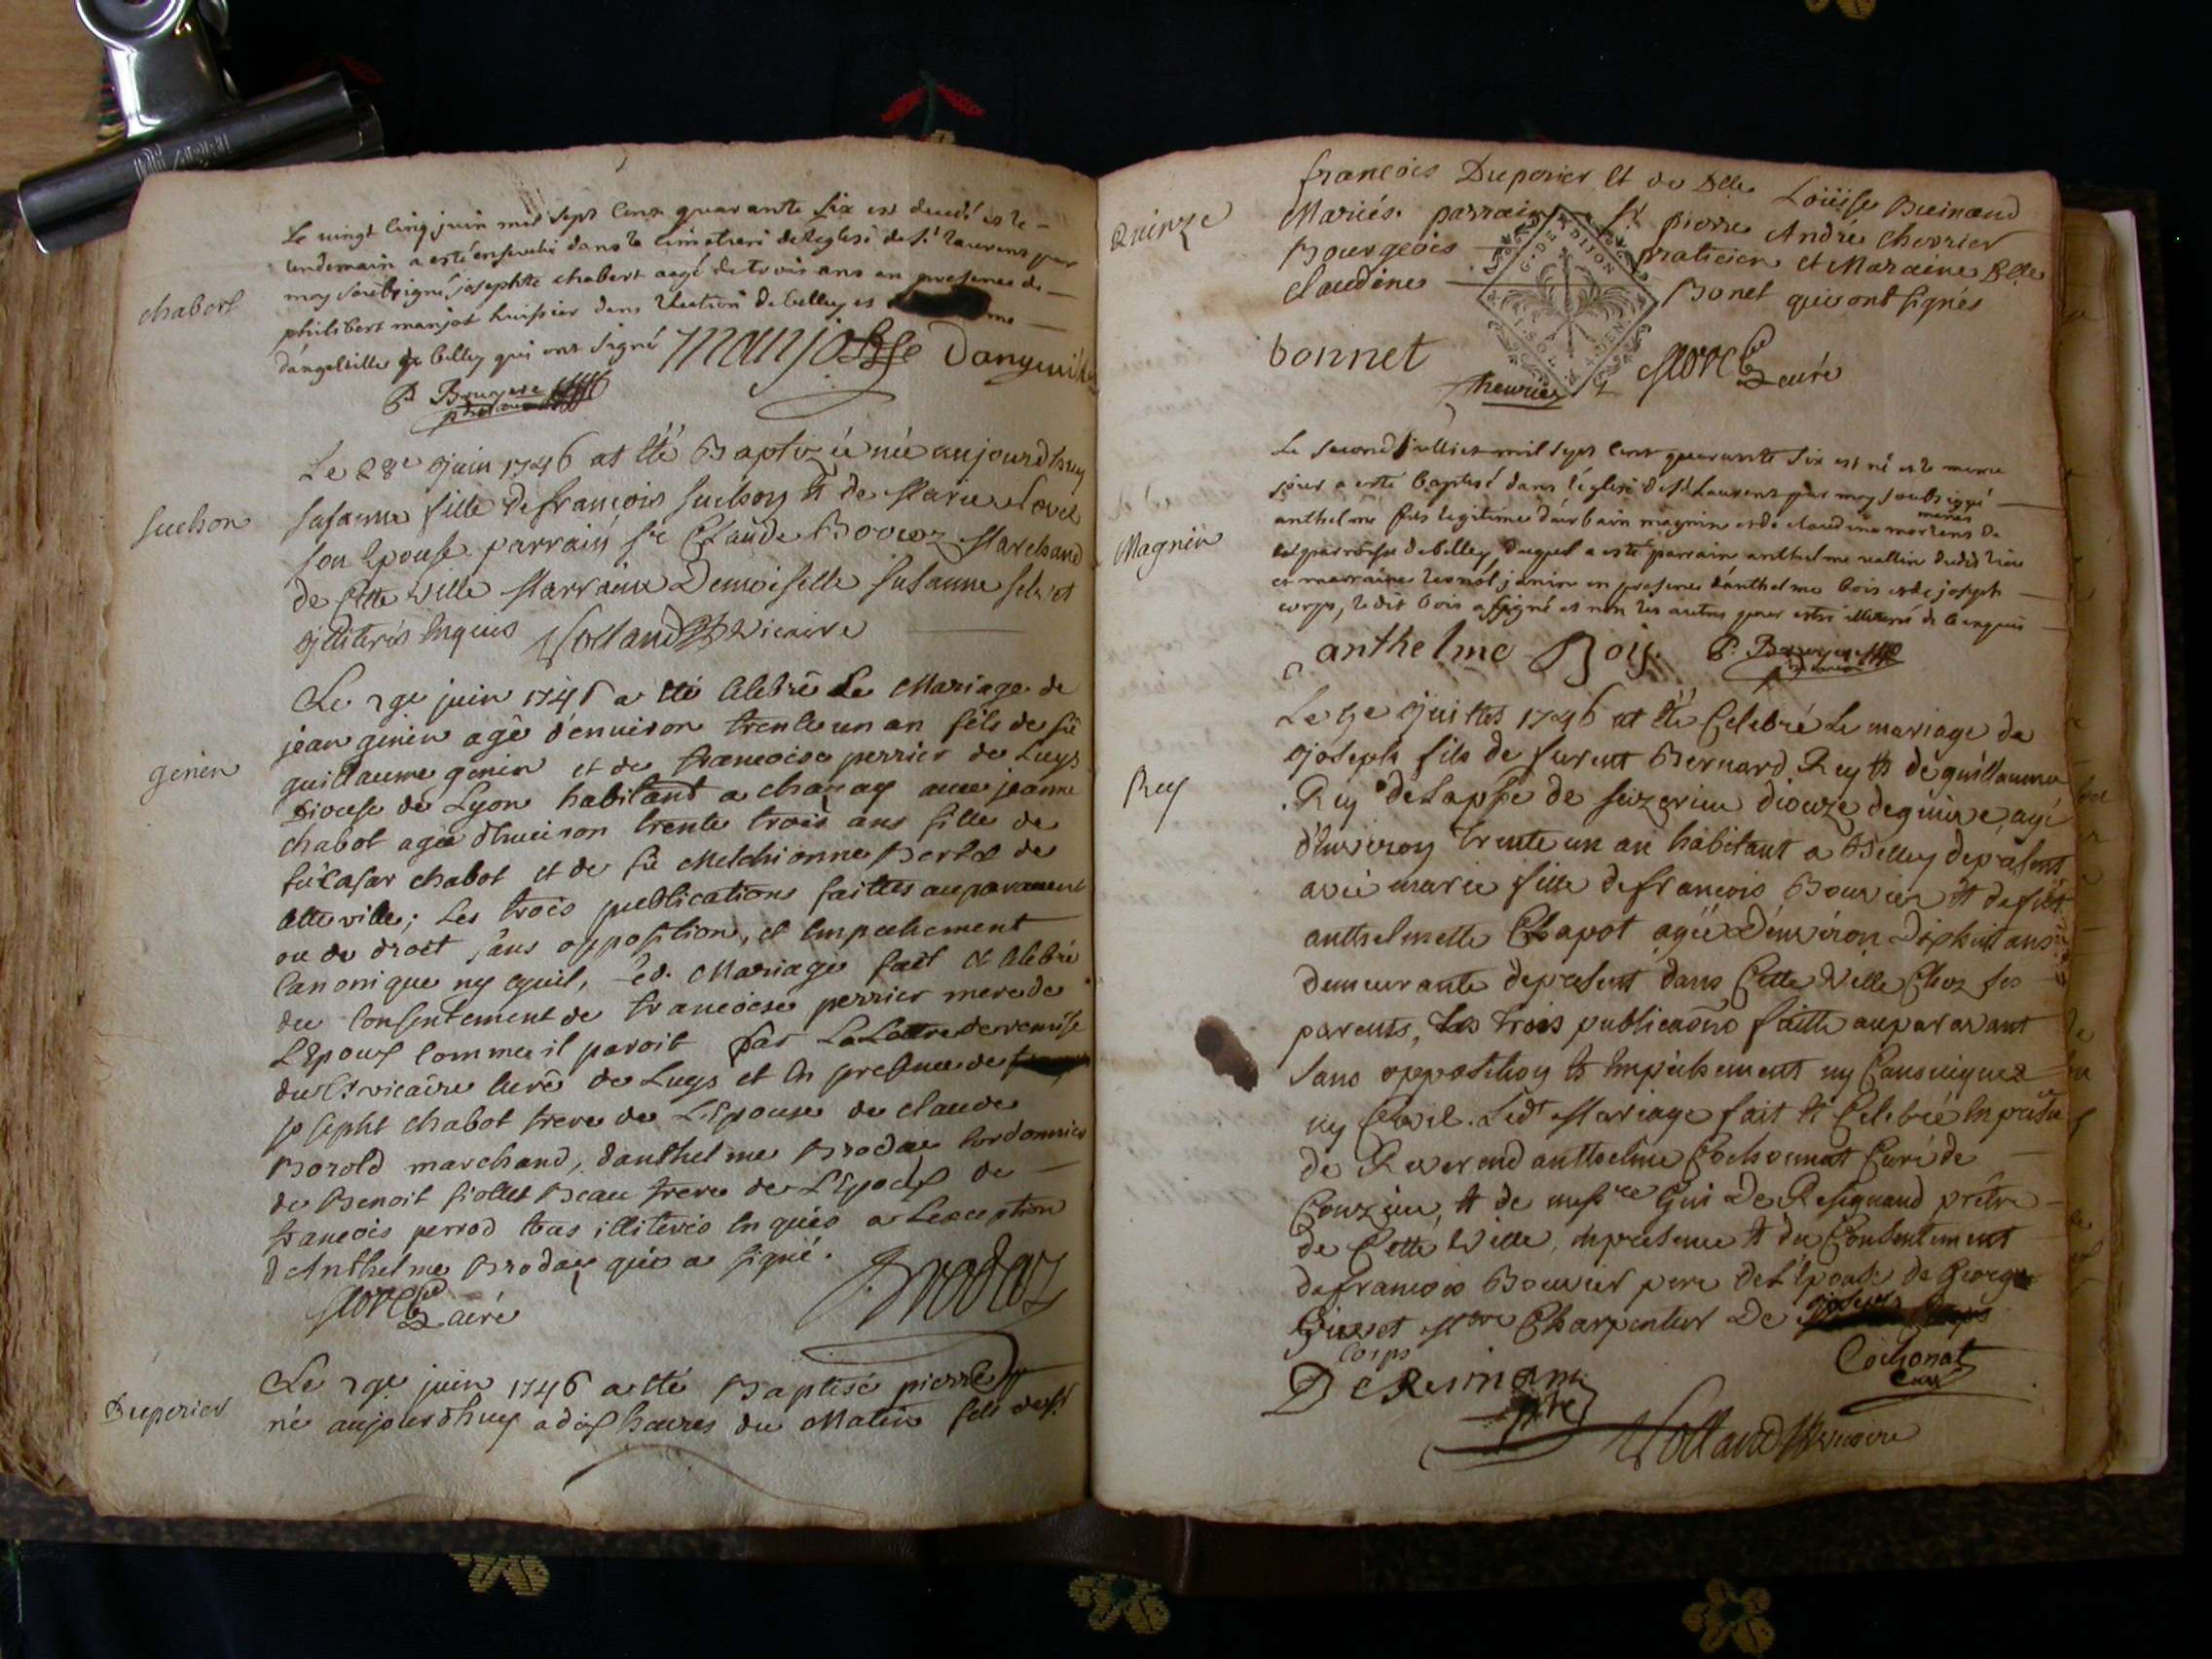 Le vingt cinq juin mil sept cens quarante six est decedé et le
lendemain a esté enseveli dans le cimetiere de leglise de St laurens par
moy soubsigné josephte chabert aagé de trois ans en presence de
chabert
philibert manjot huissier dans lélection de belley et
dángeville de belley qui ont signé manjot Dangeville
P. Bruyere
Le 28e juin 1746 at été Baptizéé néé aujourdhuy
suchon
susanne fille de francois suchon et de Marie
son Epouse. parrain sr Claude Bovier Marchand
de Cette ville Marraine Demoiselle susanne
illiterés Enquis Volland vicaire
Le 29e juin 1746 a été Celebré Le Mariage de
jean genin agé d'environ trente un an fils de fû
genin
guillaume genin et de francoise perrier de Luys
Diocese de Lyon habitant a chazay avec jeanne
chabot agée d'Environ trente trois ans fille de
fû Casar chabot et de fû Melchionne de
cette ville; Les trois publications faittes auparavant
ou de droit sans opposition, et Empechement
Canonique ny Cyuil, Led. Mariage fait et Celebré
du Consentement de francoise perrier mere de
L'Epoux Comme il paroit par La Lettre de remise
du Sr vicaire Curé de Luys et En presence de
josepht chabot frere de L'Epouse de claude
Borold marchand, danthelme Brodaz Cordonnier
de Benoit fiollet Beau frere de L'Epoux de
francois perrod tous illiterés Enquis a Lexception
d'Anthelme Brodaz qui a signé. Brodaz
curé
Le 29e juin 1746 a été Baptisé pierre
Duperier
né aujourdhuy a dix heures du Matin fils de Sr
francois Duperier et de Dlle Loüise
Quinze
Mariés. parrain Sr pierre Andre cherrier
Bourgeois praticien et Maraine Dlle
claudine Bonet qui ont signés
G. DE DIJON
bonnet cherrier curé
Le second julliet mil sept cens quarante six est né et le meme
jour a esté baptisé dans l'église de St Laurens par moy soubsigné
anthelme fils legitime dúrbain magnin et de claudine mortens de
mariés
Magnin
parroisse de belley duquel a esté parrain anthelme vallin dudit lieu
et marraine janin en presence dánthelme bois et de joseph
corps, ledit bois a signé et non les autres pour estre illiteré de ce enquis
anthelme Boiy P. Bruyere
Le 5e juillet 1746 at été Celebré Le mariage de
joseph fils de furent Bernard Rey et de guillauma
Rey
Rey de Lappe de seizerieu diocese agé
d'Environ trente un an habitant a Belley depresent
avec marie fille de francois Bouvier et de füe
anthelmette Chapot agéé d'énviron dixhuit ans
demeurante depresent dans Cette ville Chez ses
parents, Les trois publicaons faitte auparavant
sans opposition et Empéchement ny Canonique
ny Civil. Ledt Mariage fait et Celebré En présce
de Reverend anthelme Cochonnat Curé de
Conzieu, et de messre Gui De Resignand prétre
de Cette ville, enpresence et du Consentement
de francois Bouvier pere de L'épouse de George
Mtre Charpentier De joseph
Corps
Cochonat
Curé
Volland vicaire